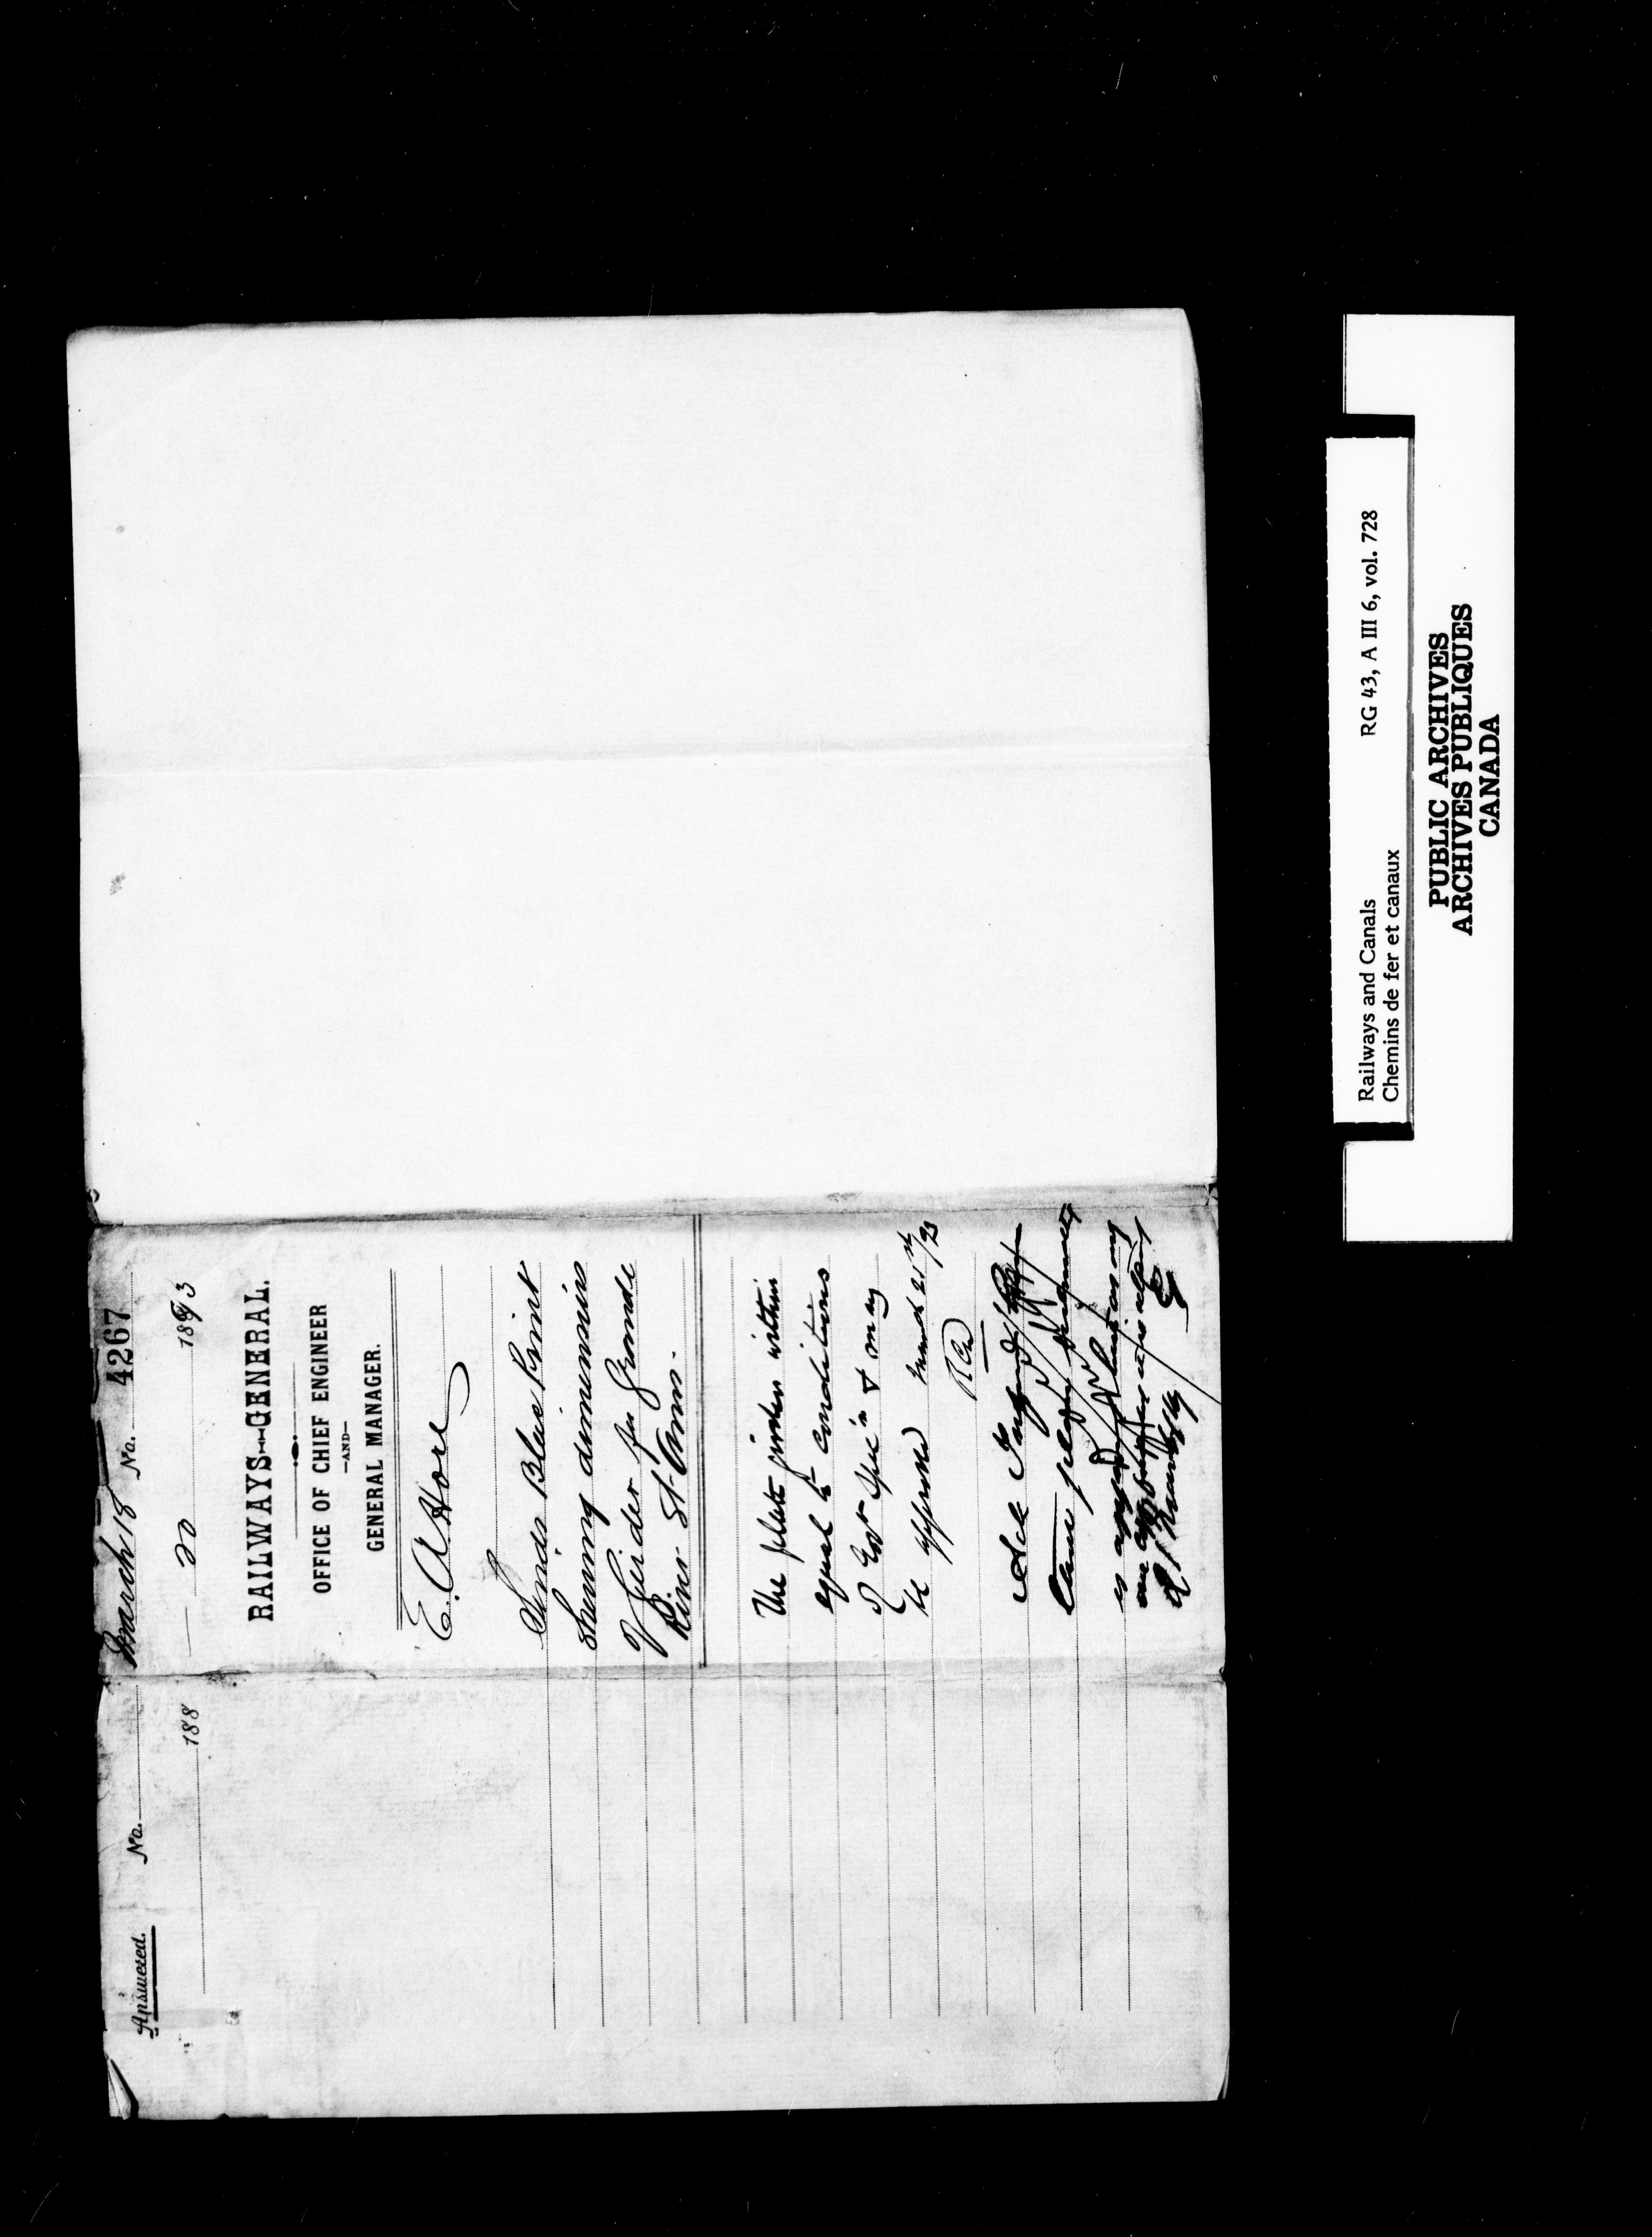 March 18 No. 4267
20 1893
RAILWAYS—GENERAL.
OFFICE OF CHIEF ENGINEER
—AND—
GENERAL MANAGER.
E. A. Hoare
Sends Blue Print
Showing dimensions
of Girder for Grande
River St. Anns.
The plate girders within
equal to conditions
of Govt Spec'n & may
be approved March 21st/93
RCD
Answered. No.
188
Railways and Canals RG 43, A III 6, vol. 728
Chemins de fer et canaux
PUBLIC ARCHIVES
ARCHIVES PUBLIQUES
CANADA